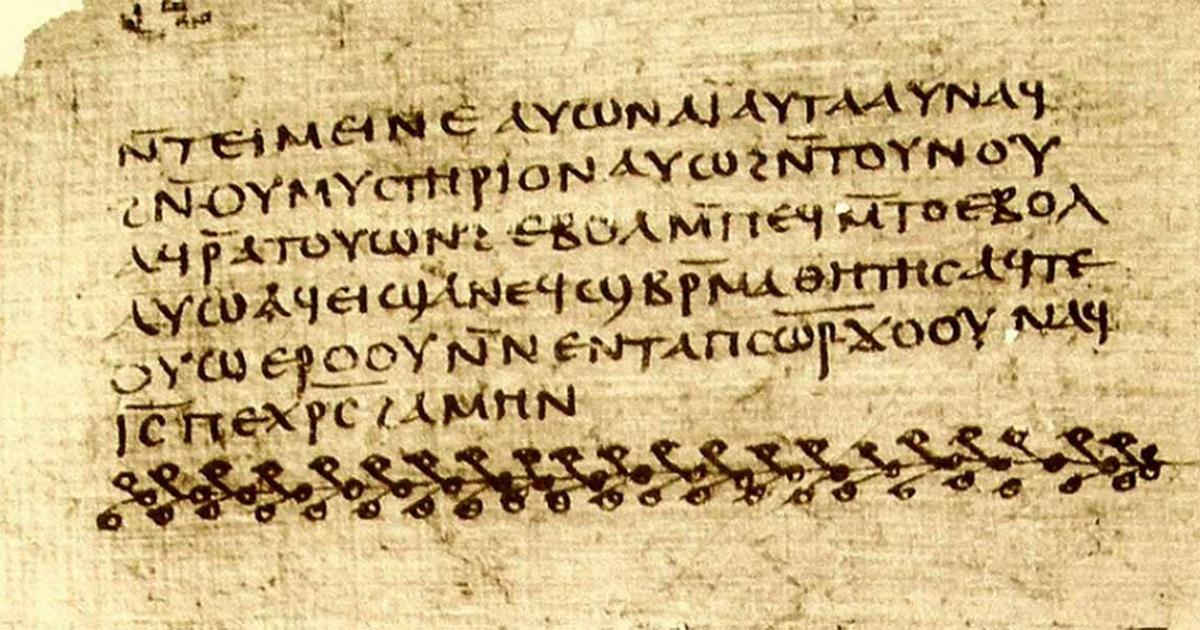 ⲛ̄ⲧⲉⲓⲙⲉⲓⲛⲉ ⲁⲩⲱⲛⲁⲓ̈ⲁⲩⲧⲁⲁⲩⲛⲁϥ
ϩⲛ̄ⲟⲩⲙⲩⲥⲧⲏⲣⲓⲟⲛⲁⲩⲱϩⲛ̄ⲧⲟⲩⲛⲟⲩ
ⲁϥⲣ̄ⲁⲧⲟⲩⲱⲛϩ ⲉⲃⲟⲗⲙ̄ⲡⲉϥⲙ̄ⲧⲟⲉⲃⲟⲗ
ⲁⲩⲱⲁϥⲉⲓϣⲁⲛⲉϥϣⲃⲣ̄ⲙⲁⲑⲏⲧⲏⲥⲁϥⲧⲉ
ⲟⲩⲱ ⲉⲣⲟⲟⲩⲛ̄ⲛ ⲉⲛⲧⲁⲡⲥⲱ̅ⲣ̅ϫⲟⲟⲩ ⲛⲁϥ
ⲓ̅ⲥ̅ⲡⲉⲭⲣ̅ⲥ̅ ϩⲁⲙⲏⲛ